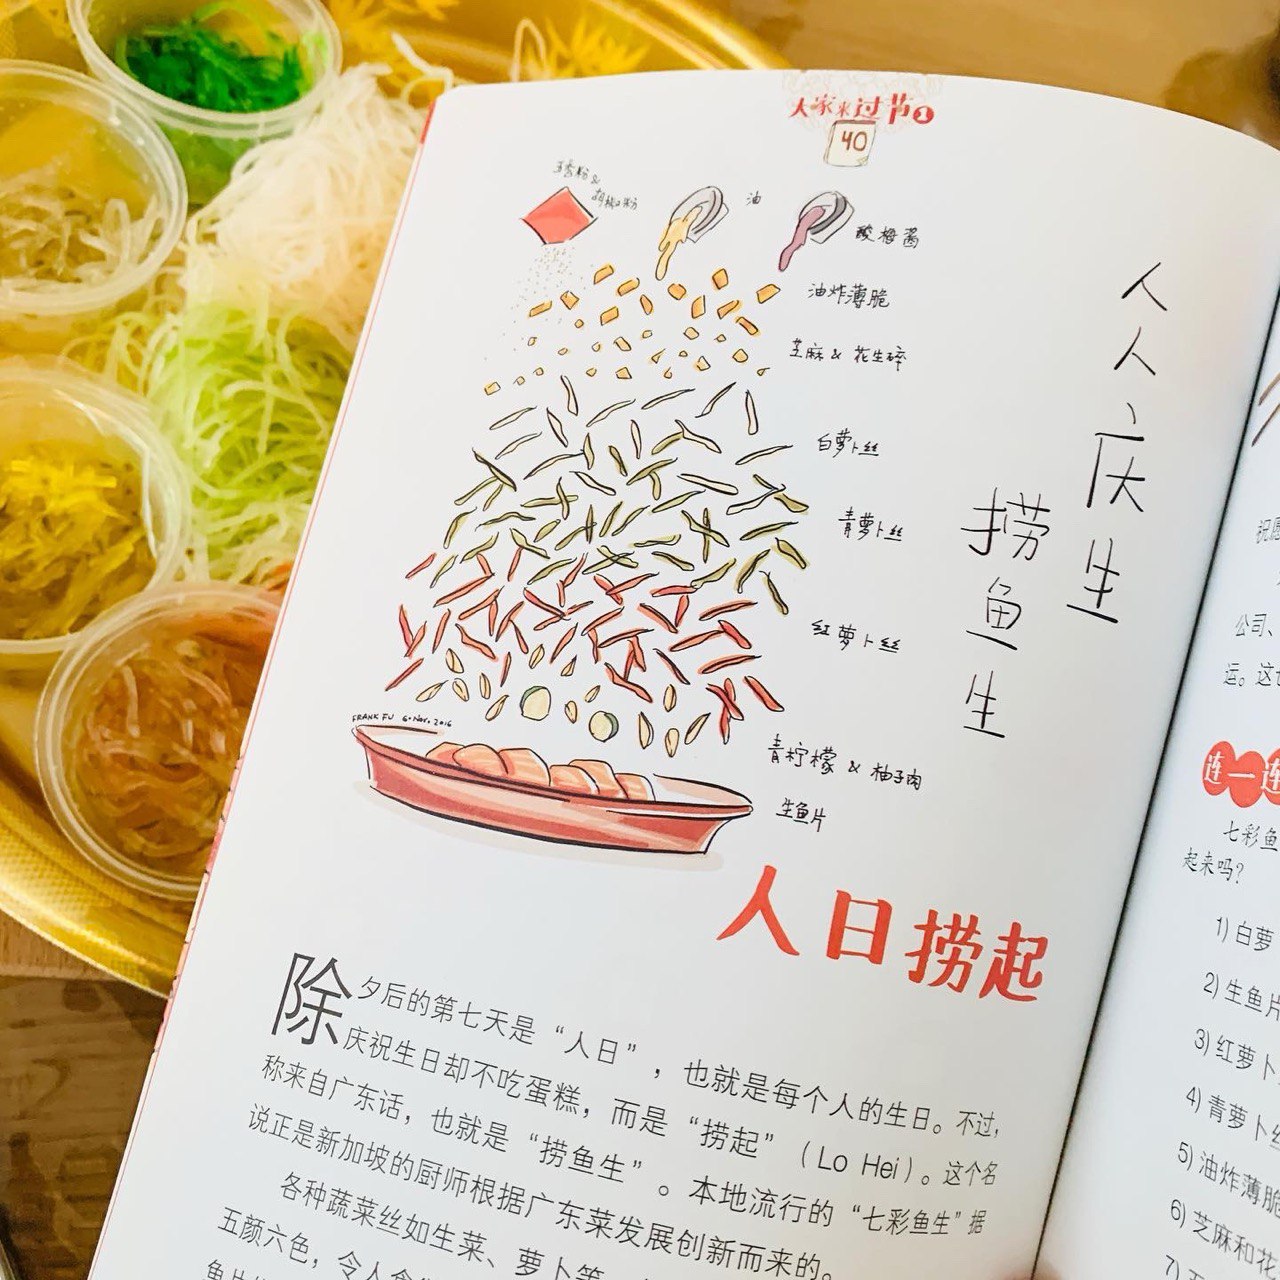 大家来过节1
40
五香粉 &
胡椒粉
油
酸梅酱
油炸薄脆
芝麻 & 花生碎
白萝卜丝
青萝卜丝
红萝卜丝
青柠檬 & 柚子肉
生鱼片
FRANK FU 6·Nov. 2016
人人庆生
捞鱼生
人日捞起
除夕后的第七天是“人日”，也就是每个人的生日。不过，
庆祝生日却不吃蛋糕，而是“捞起”（Lo Hei）。这个名
称来自广东话，也就是“捞鱼生”。本地流行的“七彩鱼生”据
说正是新加坡的厨师根据广东菜发展创新而来的。
各种蔬菜丝如生菜、萝卜等
五颜六色，令人
鱼片
祝愿
公司、
运。这
连一连
七彩鱼
起来吗？
1) 白萝
2) 生鱼片
3) 红萝卜
4) 青萝卜丝
5) 油炸薄脆
6) 芝麻和花
7)